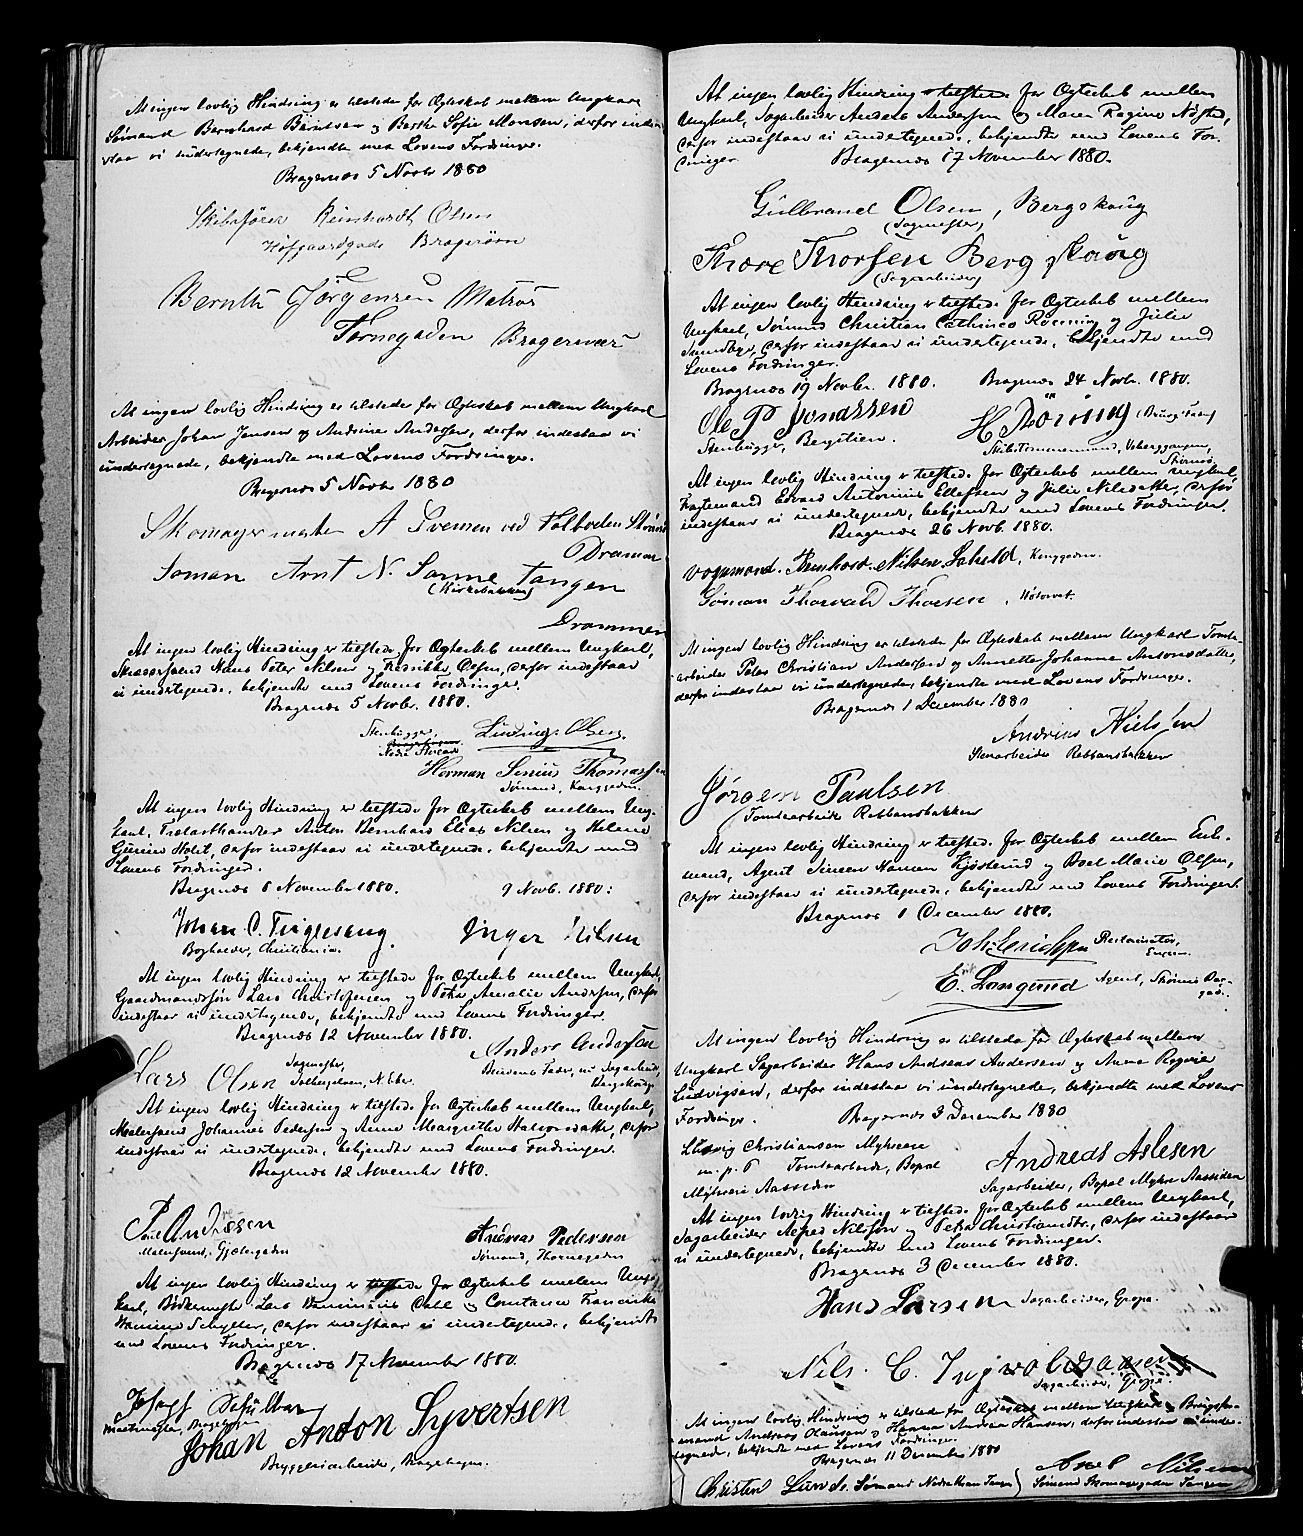 At ingen lovlig Hindring er tilstede for Ægteskab mellem Ungkarl
Sømand Bernhard Berntsen og Berthe Sofie Monsen, derfor inde-
staa vi undertegnede, bekjendte med Lovens Fordringer.
Bragernæs 5 Novbr 1880
Skibsfører Reinhardt Olsen
Hofgaardgade Bragerøen
Bernth Jørgensen
Tornegaden Bragernæs
At ingen lovlig Hindring er tilstede for Ægteskab mellem Ungkarl
Arbeider Johan Jensen og Andrine Andersen, derfor indestaa vi
undertegnede, bekjendte med Lovens Fordringer.
Bragernæs 5 Novbr 1880
Skomagermester A Svensen ved Tolboden Strømsø
Drammen
Arnt N. Sanne Tangen
(Kirkebakken)
Drammen
At ingen lovlig Hindring er tilstede for Ægteskab mellem Ungkarl,
Hans Peter Nilsen og Fredrikke Olsen, derfor indestaar
vi undertegnede, bekjendte med Lovens Fordringer.
Bragernæs 5 Novbr. 1880.
Stenhugger, Ludvig Olsen
Herman Senius Thomassen
Sømand, Konggaden.
At ingen lovlig Hindring er tilstede for Ægteskab mellem Ung-
karl, Trælasthandler Anton Bernhard Elias Nilsen og Helene
Gurine Holst, derfor indestaar vi undertegnede, bekjendte med
Lovens Fordringer.
Bragernæs 8 November 1880. 9 Novb. 1880:
Johan C. Inger Nilsen
Bogholder, Christiania
At ingen lovlig Hindring er tilstede for Ægteskab mellem Ungkarl,
Gaardmandssøn Lars Christofersen og Petra Amalie Andersen, derfor
indestaar vi undertegnede, bekjendte med Lovens Fordringer.
Bragernæs 12 November 1880.
Lars Olsen Sagmester, Anders Anderssen
Brudens Fader, Sagarbeid.,
Bergskoug
At ingen lovlig Hindring er tilstede for Ægteskab mellem Ungkarl,
Malersvend Johannes Pedersen og Anne Margrethe Halvorsdatter, derfor
indestaar vi undertegnede, bekjendte med Lovens Fordringer.
Bragernæs 12 November 1880.
Andreas Pedersen
Malersvend, Sømand, Thornegaden
At ingen lovlig Hindring er tilstede for Ægteskab mellem Ung-
karl, Bødkermester Lars Dahl og Constance Franciska
derfor indestaar vi undertegnede, bekjendte
med Lovens Fordringer.
Bragernæs 17 November 1880.
Johan Anton Syvertsen
Bryggeriarbeider, Bragehagen.
At ingen lovlig Hindring tilstede for Ægteskab mellem
Ungkarl, Sagarbeider Anders Andersen og Maren Regine Nøsted,
derfor indestaar vi undertegnede, bekjendte med Lovens For-
dringer Bragernæs 17 November 1880.
Gulbrand Olsen, Bergskoug
(Sagmester)
Thore Thorsen Bergskoug
(Sagarbeider)
At ingen lovlig Hindring er tilstede for Ægteskab mellem
Ungkarl, Sømand Christian Cathinco Roening og Julie
Sundbye, derfor indestaar vi undertegnede, bekjendte med
Lovens Fordringer.
Bragernæs 19 Novbr. 1880. Bragernæs 24 Novb. 1880.
Ole P Jonassen H Röning (Brudg. Fader)
Stenhugger, Bergstien. Skibstømmermand,
Strømsø
At ingen lovlig Hindring er tilstede for Ægteskab mellem Ungkarl,
Edvard Antonius Ellefsen og Julie Nilsdatter, derfor
indestaar vi undertegnede, bekjendte med Lovens Fordringer.
Bragernæs 26 Novb. 1880.
Vognmand. Reinhart Nilsen Konggaden.
Sømand Thorvald Thorsen,
At ingen lovlig Hindring er tilstede for Ægteskab mellem Ungkarl Tomte-
arbeider Peter Christian Andersen og Annette Johanne Antonsdatter,
derfor indestaar vi undertegnede, bekjendte med Lovens Fordringer.
Bragernæs 1 December 1880
Andreas Nielsen
Stenarbeider Rebbansbakken
Jørgen Paulsen
Tomtearbeider Rebbansbakken
At ingen lovlig Hindring er tilstede for Ægteskab mellem Enke-
mand, Agent Simen Hansen Kjøsterud og Boel Marie Olsen,
derfor indestaar vi undertegnede, bekjendte med Lovens Fordringer.
Bragernæs 1 December 1880.
Joh Erichsen
E. Langerud Agent, Strømsø
At ingen lovlig Hindring er tilstede for Ægteskab mellem
Ungkarl Sagarbeider Hans Andreas Andersen og Anna Regine
Ludvigsen, derfor indestaa vi undertegnede, bekjendte med Lovens
Fordringer. Bragernæs 3 December 1880
Ludvig Christiansen Myhrene
m. p. P Tomtearbeider, Bopæl Andreas Aslesen
Myhrene Aassiden Sagarbeider, Bopæl Myhre Aassiden
At ingen lovlig Hindring er tilstede for Ægteskab mellem Ungkarl,
Sagarbeider Alfred Nilssen og Petra Christiansdtr., derfor indestaar
vi undertegnede, bekjendte med Lovens Fordringer.
Bragernæs 3 December 1880.
Hans Larsen Sagarbeider, Gropa.
Nils. C. Ingvoldsen
Sagarbeider, Gropa.
At ingen lovlig Hindring er tilstede for Ægteskab mellem Ungkarl
Andreas Hansen og Hanna Andrea Hansen, derfor indestaa vi under-
tegnede, bekjendte med Lovens Fordringer.
Bragernæs 11 December 1880
Christen Lund. Sømand Tangen Axel Nilsen
Sømand Skomagergaden Tangen